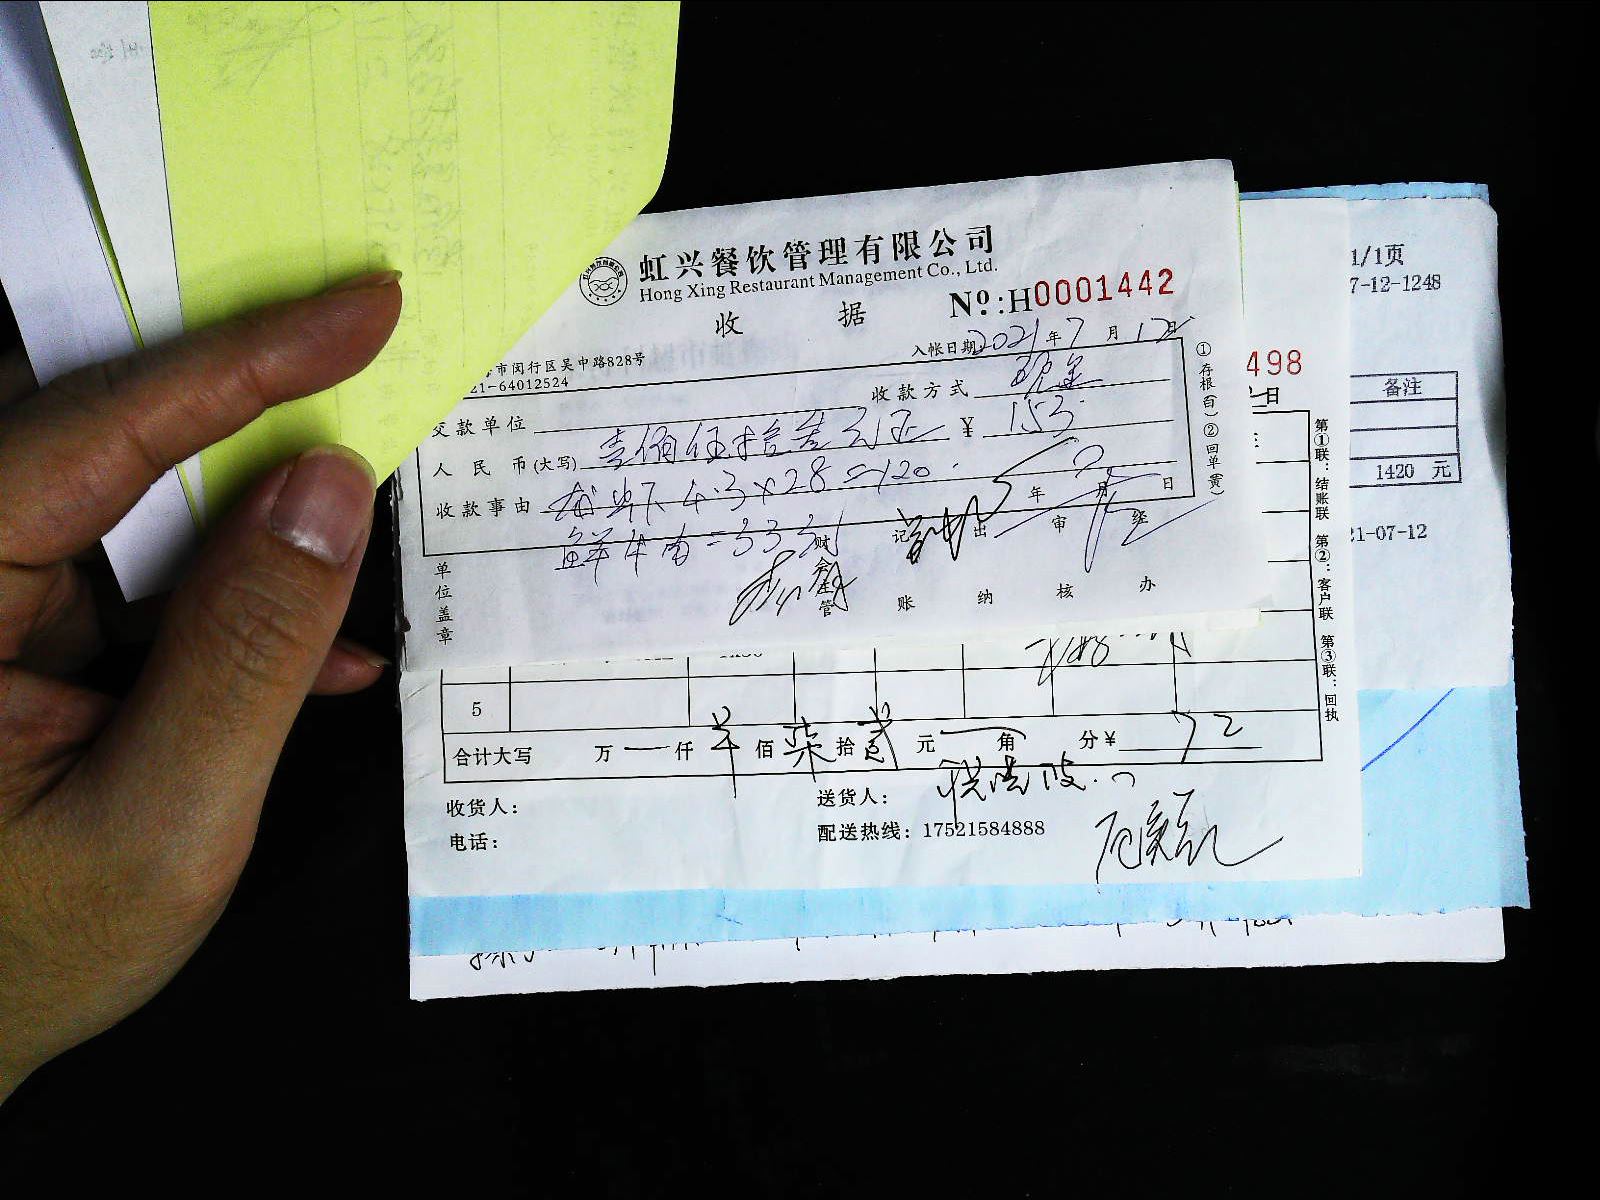 虹兴餐饮管理有限公司
Hong Xing Restaurant Management Co., Ltd.
收 据
№.:H0001442
入帐日期 2021 年 7 月 12 日
市闵行区吴中路828号
21-64012524
收款方式 现金
交款单位
人民币(大写) 壹佰伍拾叁元正 ¥ 153
收款事由 4.3×28=120
年 月 日
鲜牛肉=33元
单位盖章
财会主管
记账
出纳
审核
经办
①存根(白) ②回单(黄)
1/1页
7-12-1248
498
日
备注
1420 元
21-07-12
第①联:结账联 第②:客户联 第③联:回执
5
合计大写 万 仟 佰 柒 拾 贰 元 角 分 ¥ 72
收货人:
送货人:
电话:
配送热线: 17521584888